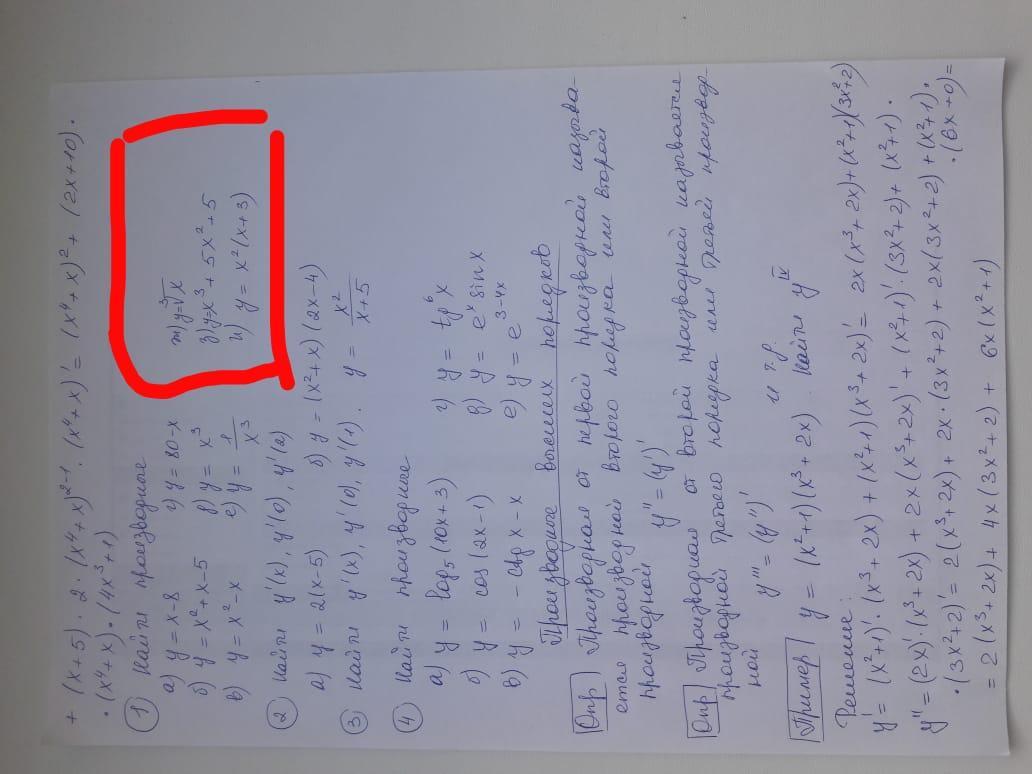 + (x+5)·2·(x⁴+x)²⁻¹·(x⁴+x)' = (x⁴+x)² + (2x+10)·
·(x⁴+x)·(4x³+1)
① Найти производные
а) y = x-8 г) y = 80-x ж) y = ∛x
б) y = x²+x-5 д) y = x³ з) y = x³+5x²+5
в) y = x²-x е) y = 1/x³ и) y = x²(x+3)
② Найти y'(x), y'(0), y'(2)
а) y = 2(x-5) б) y = (x²+x)(2x-4)
③ Найти y'(x), y'(0), y'(1). y = x²/(x+5)
④ Найти производные
а) y = log₅(10x+3) г) y = tg⁶x
б) y = cos(2x-1) д) y = eˣ sin x
в) y = -ctg x - x е) y = e³⁻⁴ˣ
Производные высших порядков
Опр Производная от первой производной называ-
ется производной второго порядка или второй
производной y'' = (y')'
Опр Производная от второй производной называется
производной третьего порядка или третьей производ-
ной y''' = (y'')' и т.д.
Пример y = (x²+1)(x³+2x). Найти y^IV
Решение:
y' = (x²+1)'·(x³+2x) + (x²+1)(x³+2x)' = 2x(x³+2x)+(x²+1)(3x²+2)
y'' = (2x)'·(x³+2x) + 2x(x³+2x)' + (x²+1)'·(3x²+2) + (x²+1)·
·(3x²+2)' = 2(x³+2x) + 2x·(3x²+2) + 2x(3x²+2) + (x²+1)·
·(6x+0) =
= 2(x³+2x) + 4x(3x²+2) + 6x(x²+1)